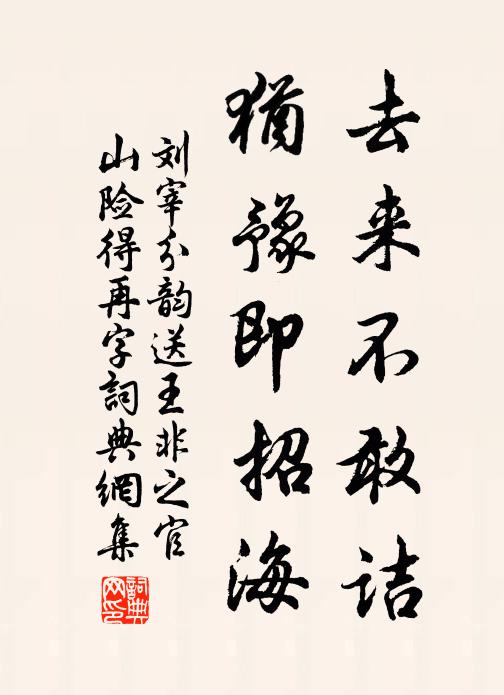 去来不敢诘
猶豫即招海
刘宰分韵送王非之官
山险得再字詞典網集